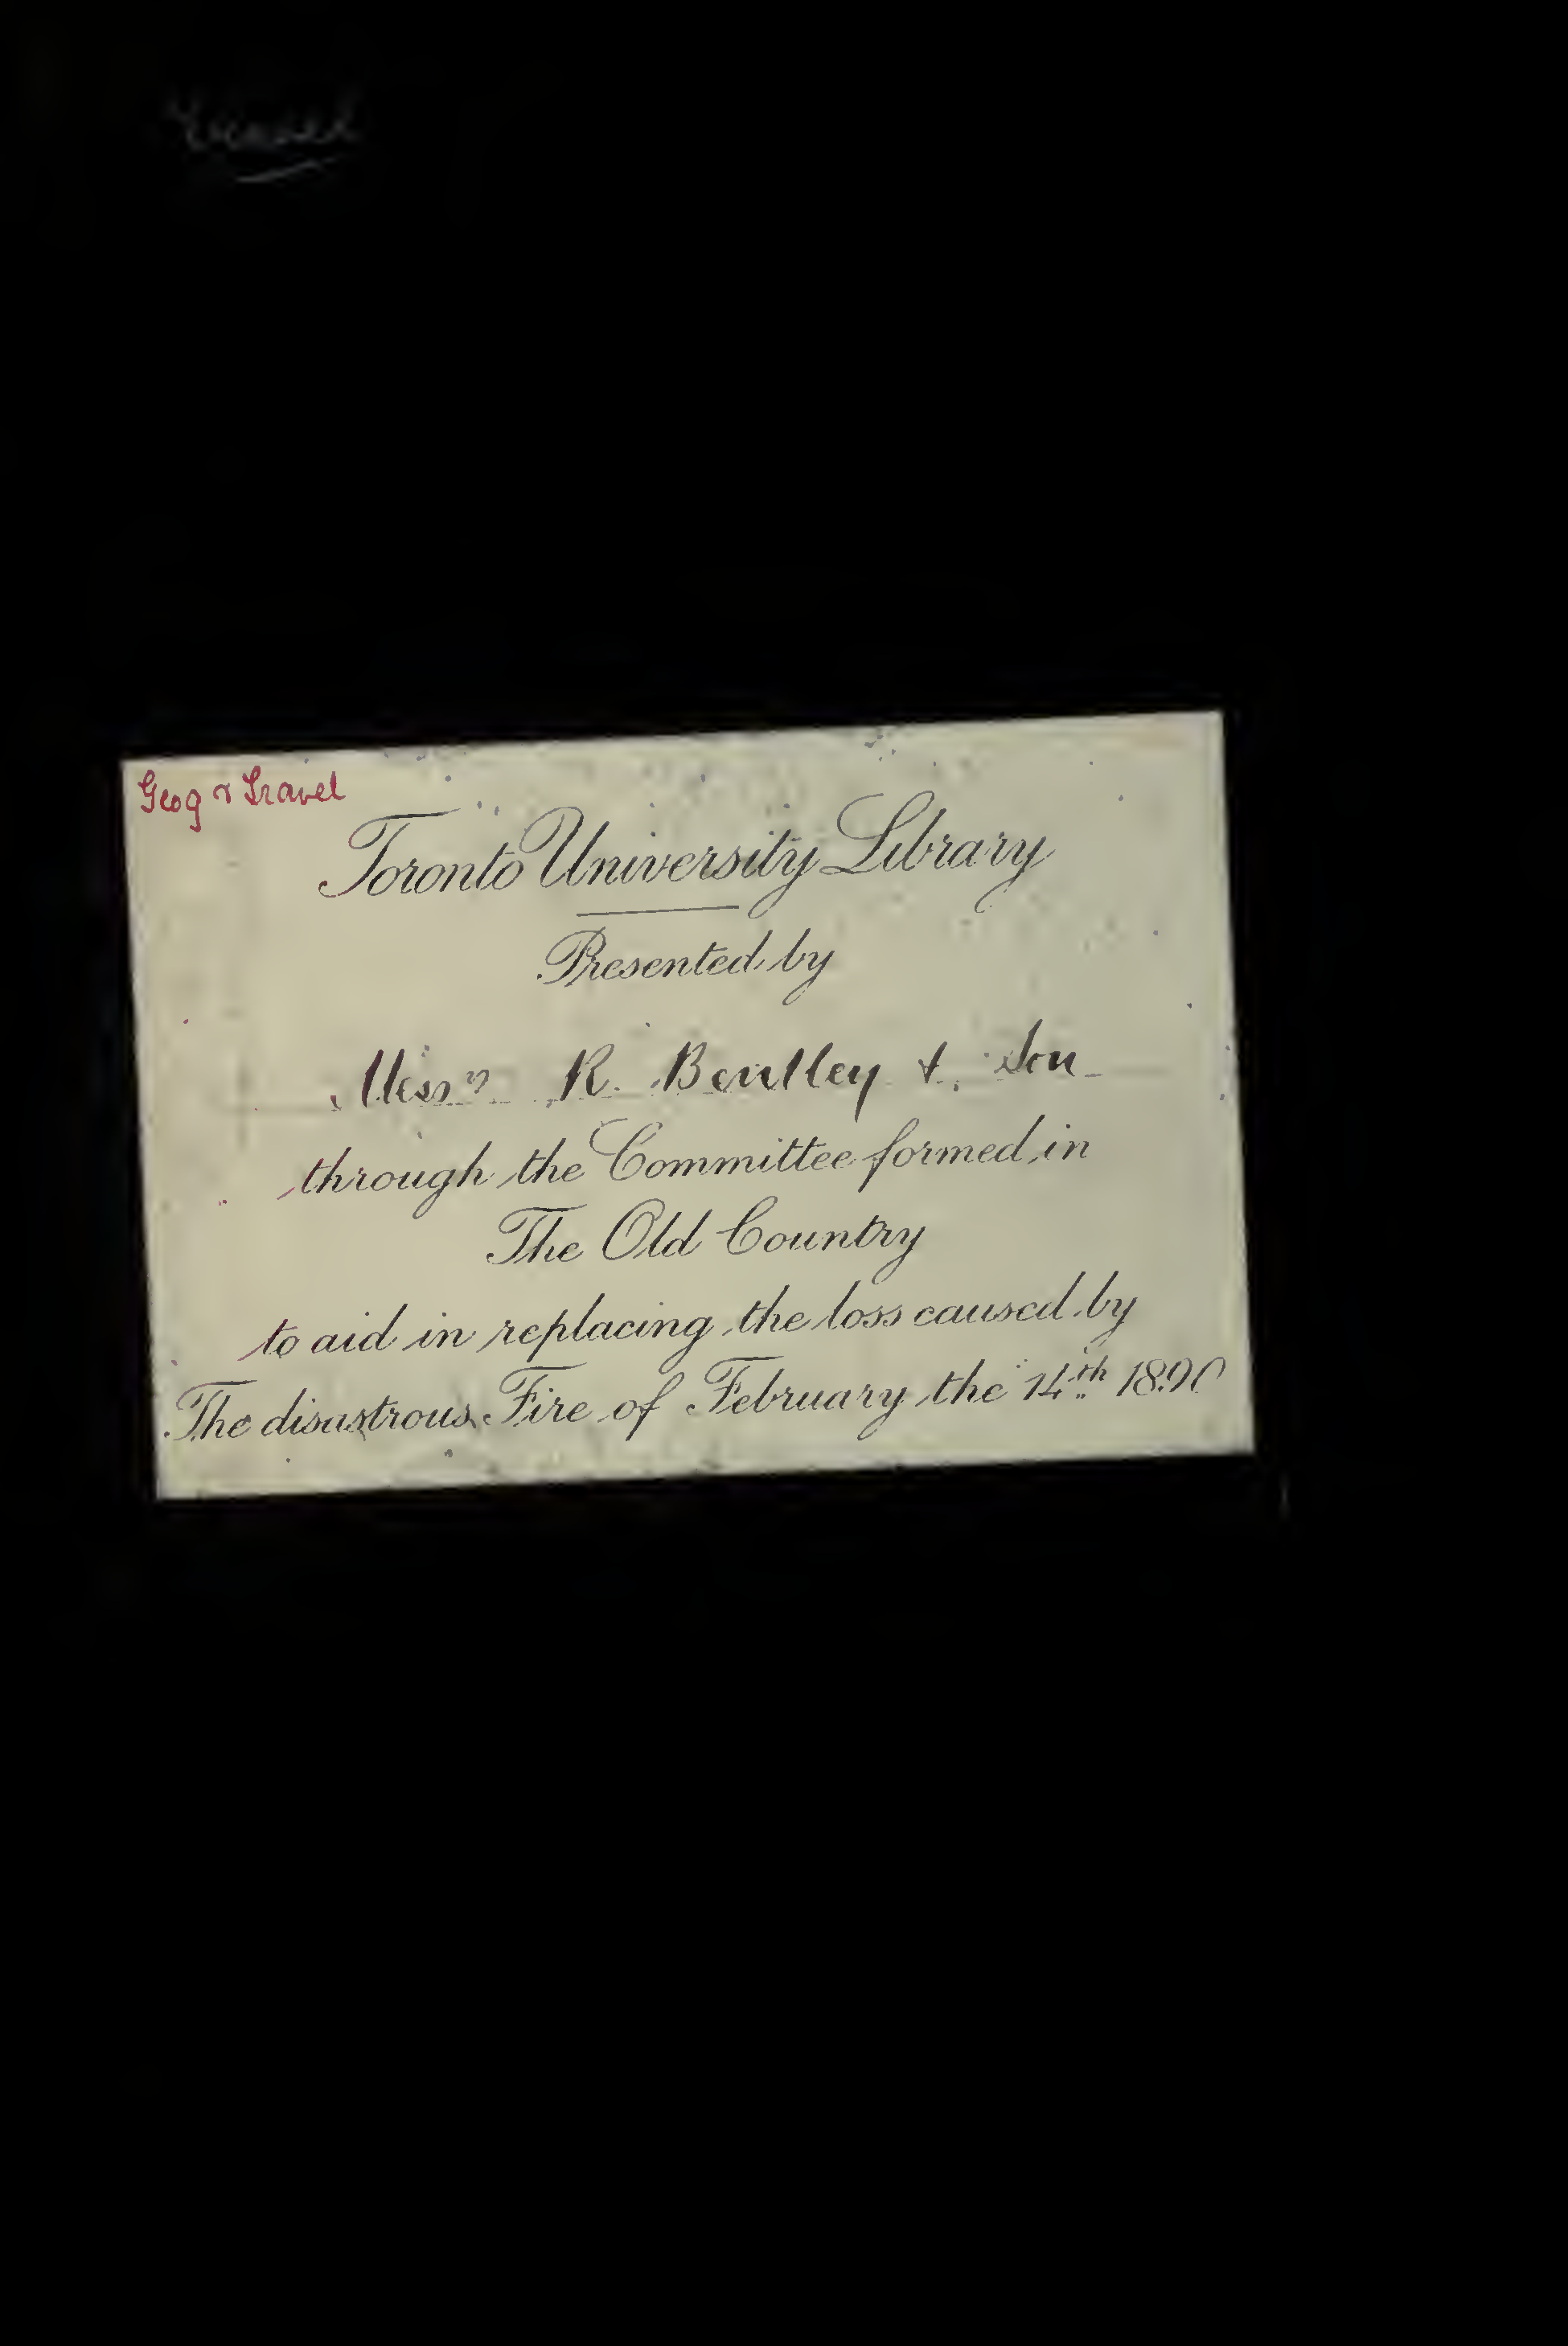 Geog & Travel
Toronto University Library
Presented by
Messrs R. Bentley & Son
through the Committee formed in
The Old Country
to aid in replacing the loss caused by
The disastrous Fire of February the 14th 1890